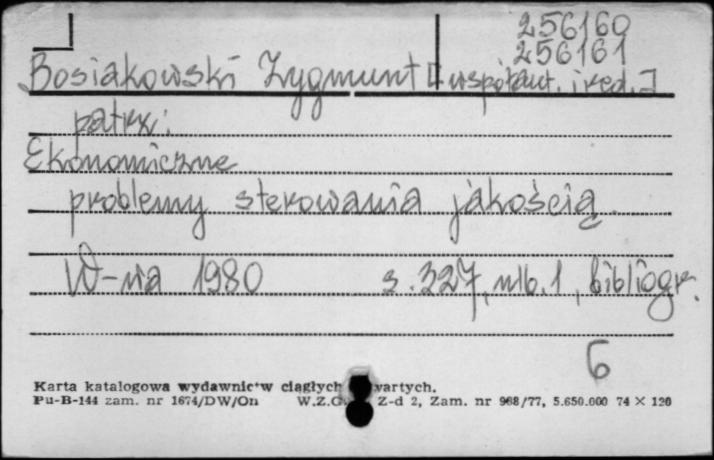 256160
256161
Bosiakowski Zygmunt [współaut. i red.]
patrz:
Ekonomiczne
problemy sterowania jakością.
W-wa 1980 s. 327, nlb. 1, bibliogr.
6
Karta katalogowa wydawnictw ciągłych wartych.
Pu-B-144 zam. nr 1674/DW/On W.Z.G. Z-d 2, Zam. nr 968/77, 5.650.000 74 × 120